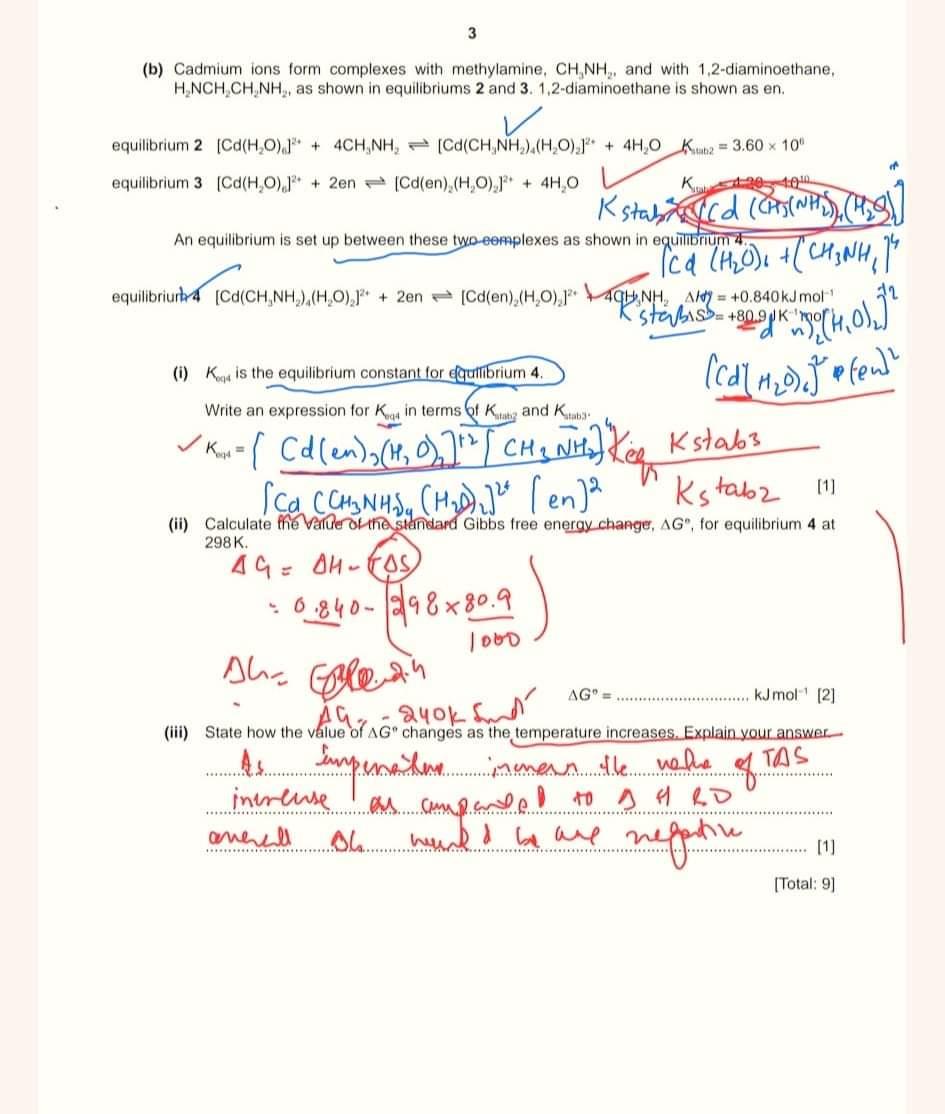 3
(b) Cadmium ions form complexes with methylamine, CH₃NH₂, and with 1,2-diaminoethane,
H₂NCH₂CH₂NH₂, as shown in equilibriums 2 and 3. 1,2-diaminoethane is shown as en.
equilibrium 2 [Cd(H₂O)₆]²⁺ + 4CH₃NH₂ ⇌ [Cd(CH₃NH₂)₄(H₂O)₂]²⁺ + 4H₂O Kstab2 = 3.60 × 10⁶
equilibrium 3 [Cd(H₂O)₆]²⁺ + 2en ⇌ [Cd(en)₂(H₂O)₂]²⁺ + 4H₂O
K stab
An equilibrium is set up between these two complexes as shown in equilibrium 4.
equilibrium 4 [Cd(CH₃NH₂)₄(H₂O)₂]²⁺ + 2en ⇌ [Cd(en)₂(H₂O)₂]²⁺ + 4CH₃NH₂ = +0.840 kJ mol⁻¹
K stab3 = +80.9 J K⁻¹
(i) Keq4 is the equilibrium constant for equilibrium 4.
[Cd(H₂O)₆]²⁺ (en)²
Write an expression for Keq4 in terms of Kstab2 and Kstab3.
Keq4 = [Cd(en)₂(H₂O)₂]⁺² [CH₃NH₂]⁴ Keq K stab3
[Cd(CH₃NH₂)₄(H₂O)₂]²⁺ [en]² Kstab2 [1]
(ii) Calculate the value of the standard Gibbs free energy change, ΔG°, for equilibrium 4 at
298K.
ΔG = ΔH - TΔS
= 0.840 - (298 × 80.9
1000)
ΔG =
ΔG° = .............................. kJ mol⁻¹ [2]
ΔG = - 240k
(iii) State how the value of ΔG° changes as the temperature increases. Explain your answer.
As temperature increase the value of TΔS
increase as compared to ΔH so
overall ΔG would be more negative [1]
[Total: 9]